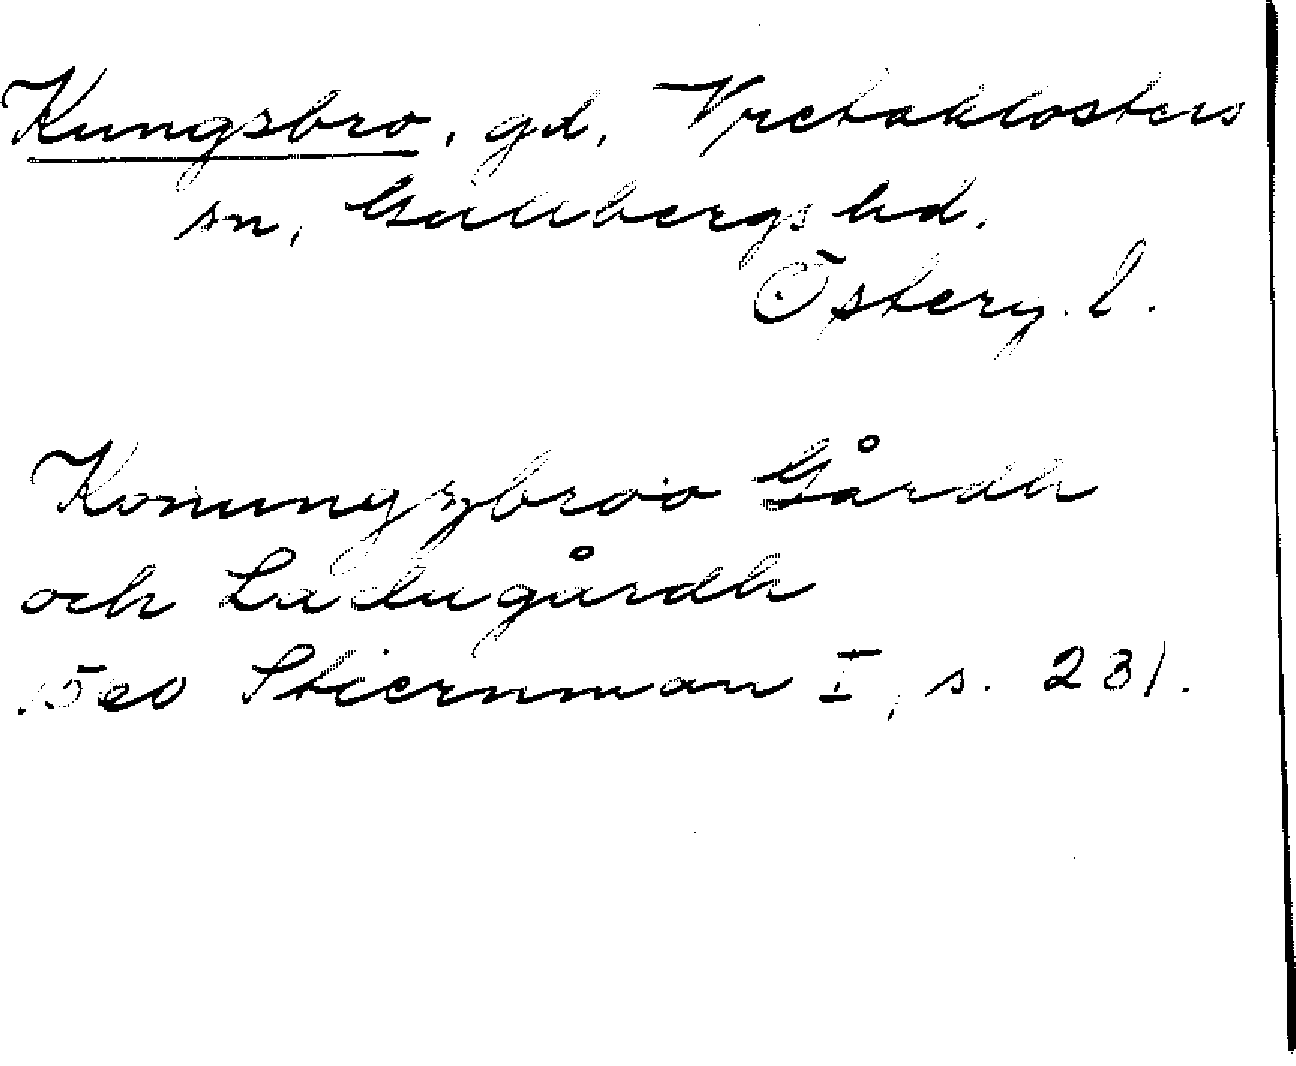 Kungsbro, gd, Vretaklosters
sn, Gullbergs hd.
Österg. l.
Konungzbroo Gårdh
och Ladugårdh
Stiernman I, s. 231.